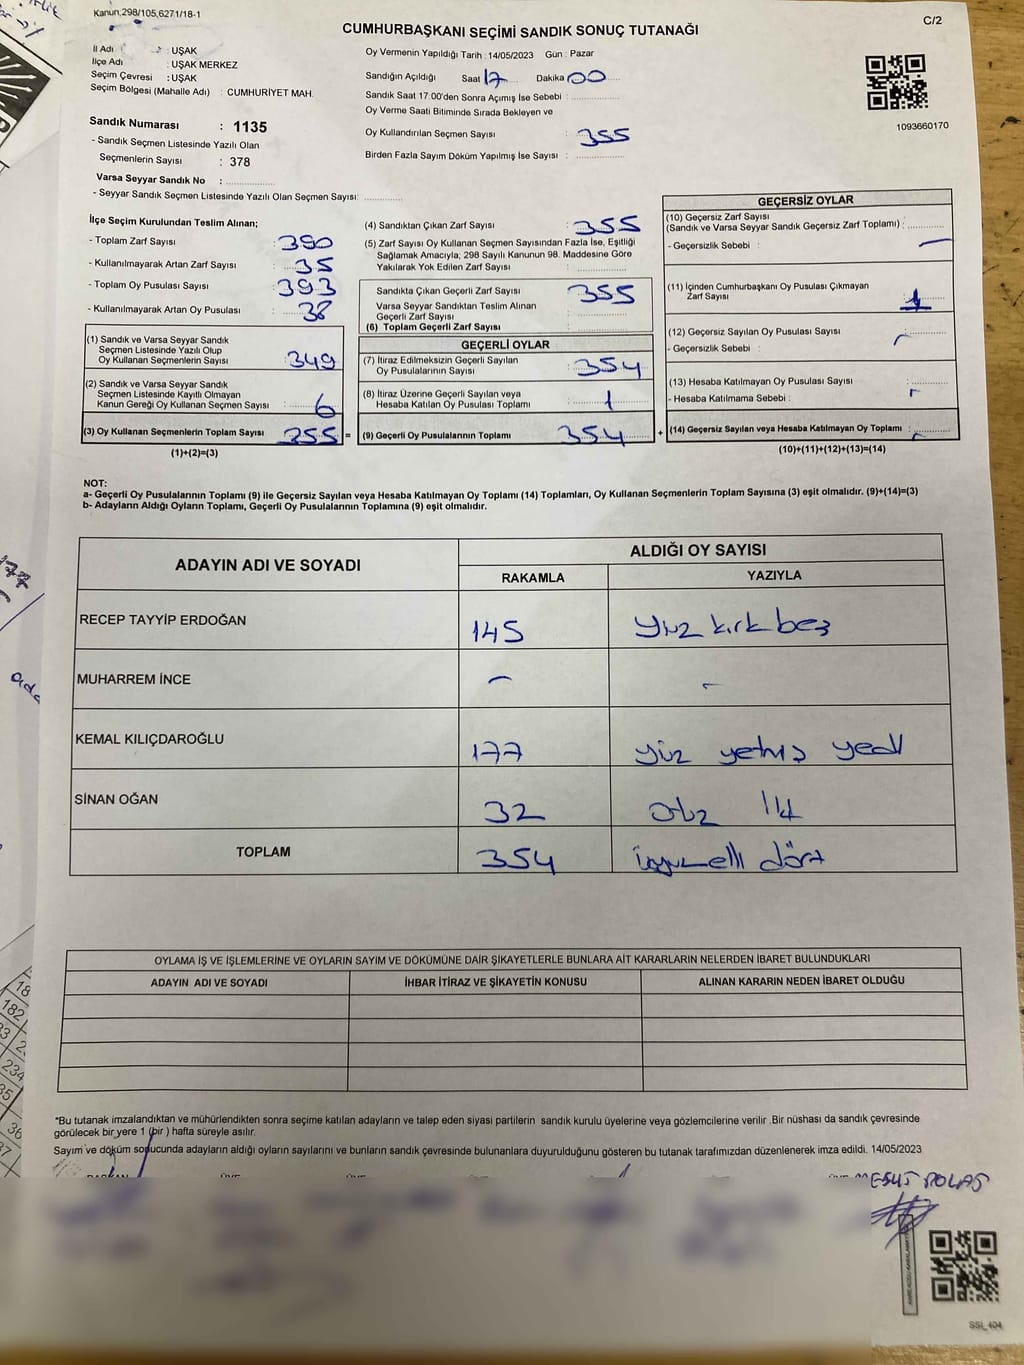 Kanun,298/105,6271/18-1
C/2
CUMHURBAŞKANI SEÇİMİ SANDIK SONUÇ TUTANAĞI
İl Adı : UŞAK
İlçe Adı : UŞAK MERKEZ
Seçim Çevresi : UŞAK
Seçim Bölgesi (Mahalle Adı) : CUMHURİYET MAH.
Sandık Numarası : 1135
- Sandık Seçmen Listesinde Yazılı Olan
Seçmenlerin Sayısı : 378
Varsa Seyyar Sandık No :
- Seyyar Sandık Seçmen Listesinde Yazılı Olan Seçmen Sayısı:
Oy Vermenin Yapıldığı Tarih : 14/05/2023 Gün : Pazar
Sandığın Açıldığı Saat 17 Dakika 00
Sandık Saat 17:00'den Sonra Açımış İse Sebebi :
Oy Verme Saati Bitiminde Sırada Bekleyen ve
Oy Kullandırılan Seçmen Sayısı : 355
Birden Fazla Sayım Döküm Yapılmış İse Sayısı :
1093660170
İlçe Seçim Kurulundan Teslim Alınan;
- Toplam Zarf Sayısı : 390
- Kullanılmayarak Artan Zarf Sayısı : 35
- Toplam Oy Pusulası Sayısı : 393
- Kullanılmayarak Artan Oy Pusulası : 38
(1) Sandık ve Varsa Seyyar Sandık
Seçmen Listesinde Yazılı Olup
Oy Kullanan Seçmenlerin Sayısı : 349
(2) Sandık ve Varsa Seyyar Sandık
Seçmen Listesinde Kayıtlı Olmayan
Kanun Gereği Oy Kullanan Seçmen Sayısı : 6
(3) Oy Kullanan Seçmenlerin Toplam Sayısı : 355 =
(1)+(2)=(3)
(4) Sandıktan Çıkan Zarf Sayısı : 355
(5) Zarf Sayısı Oy Kullanan Seçmen Sayısından Fazla İse, Eşitliği
Sağlamak Amacıyla; 298 Sayılı Kanunun 98. Maddesine Göre
Yakılarak Yok Edilen Zarf Sayısı :
Sandıkta Çıkan Geçerli Zarf Sayısı : 355
Varsa Seyyar Sandıktan Teslim Alınan
Geçerli Zarf Sayısı :
(6) Toplam Geçerli Zarf Sayısı :
GEÇERLİ OYLAR
(7) İtiraz Edilmeksizin Geçerli Sayılan
Oy Pusulalarının Sayısı : 354
(8) İtiraz Üzerine Geçerli Sayılan veya
Hesaba Katılan Oy Pusulası Toplamı : 1
(9) Geçerli Oy Pusulalarının Toplamı : 354 +
GEÇERSİZ OYLAR
(10) Geçersiz Zarf Sayısı
(Sandık ve Varsa Seyyar Sandık Geçersiz Zarf Toplamı) :
- Geçersizlik Sebebi : -
(11) İçinden Cumhurbaşkanı Oy Pusulası Çıkmayan
Zarf Sayısı : 1
(12) Geçersiz Sayılan Oy Pusulası Sayısı : -
- Geçersizlik Sebebi :
(13) Hesaba Katılmayan Oy Pusulası Sayısı :
- Hesaba Katılmama Sebebi : -
(14) Geçersiz Sayılan veya Hesaba Katılmayan Oy Toplamı : -
(10)+(11)+(12)+(13)=(14)
NOT:
a- Geçerli Oy Pusulalarının Toplamı (9) ile Geçersiz Sayılan veya Hesaba Katılmayan Oy Toplamı (14) Toplamları, Oy Kullanan Seçmenlerin Toplam Sayısına (3) eşit olmalıdır. (9)+(14)=(3)
b- Adayların Aldığı Oyların Toplamı, Geçerli Oy Pusulalarının Toplamına (9) eşit olmalıdır.
ADAYIN ADI VE SOYADI
ALDIĞI OY SAYISI
RAKAMLA YAZIYLA
RECEP TAYYİP ERDOĞAN 145 Yüz kırk beş
MUHARREM İNCE - -
KEMAL KILIÇDAROĞLU 177 yüz yetmiş yedi
SİNAN OĞAN 32 otuz iki
TOPLAM 354 üçyüz elli dört
OYLAMA İŞ VE İŞLEMLERİNE VE OYLARIN SAYIM VE DÖKÜMÜNE DAİR ŞİKAYETLERLE BUNLARA AİT KARARLARIN NELERDEN İBARET BULUNDUKLARI
ADAYIN ADI VE SOYADI İHBAR İTİRAZ VE ŞİKAYETİN KONUSU ALINAN KARARIN NEDEN İBARET OLDUĞU
*Bu tutanak imzalandıktan ve mühürlendikten sonra seçime katılan adayların ve talep eden siyasi partilerin sandık kurulu üyelerine veya gözlemcilerine verilir .Bir nüshası da sandık çevresinde
görülecek bir yere 1 (bir ) hafta süreyle asılır.
Sayım ve döküm sonucunda adayların aldığı oyların sayılarını ve bunların sandık çevresinde bulunanlara duyurulduğunu gösteren bu tutanak tarafımızdan düzenlenerek imza edildi. 14/05/2023
SSL_404